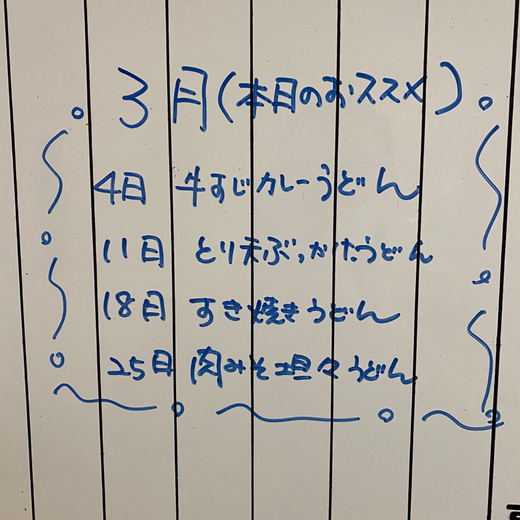 3月(本日のおススメ)
4日 牛すじカレーうどん
11日 とり天ぶっかけうどん
18日 すき焼きうどん
25日 肉みそ坦々うどん